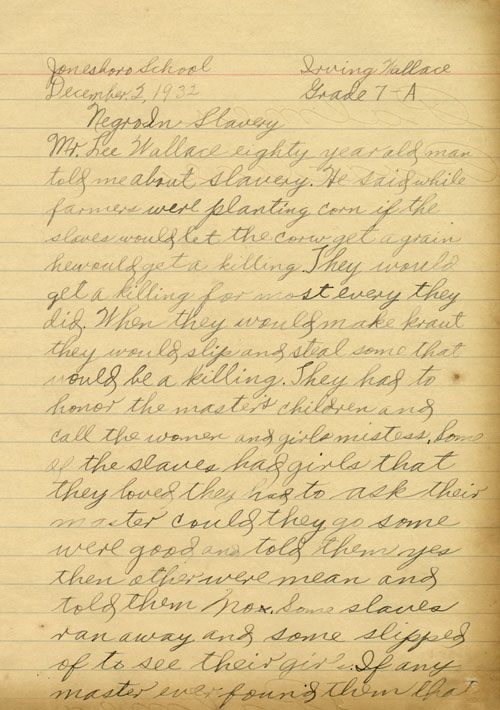 Jonesboro School Irving Wallace
December 2, 1932 Grade 7-A
Negro In Slavery
Mr. Lee Wallace eighty year old man
told me about slavery. He said while
farmers were planting corn if the
slaves would let the corw get a grain
he would get a killing. They would
get a killing for most every they
did. When they would make kraut
they would slip and steal some that
would be a killing. They had to
honor the masters children and
call the women and girls mistess. Some
of the slaves had girls that
they loved they had to ask their
master could they go some
were good and told them yes
then other were mean and
told them no. Some slaves
ran away and some slipped
of to see their girls. If any
master ever found them that